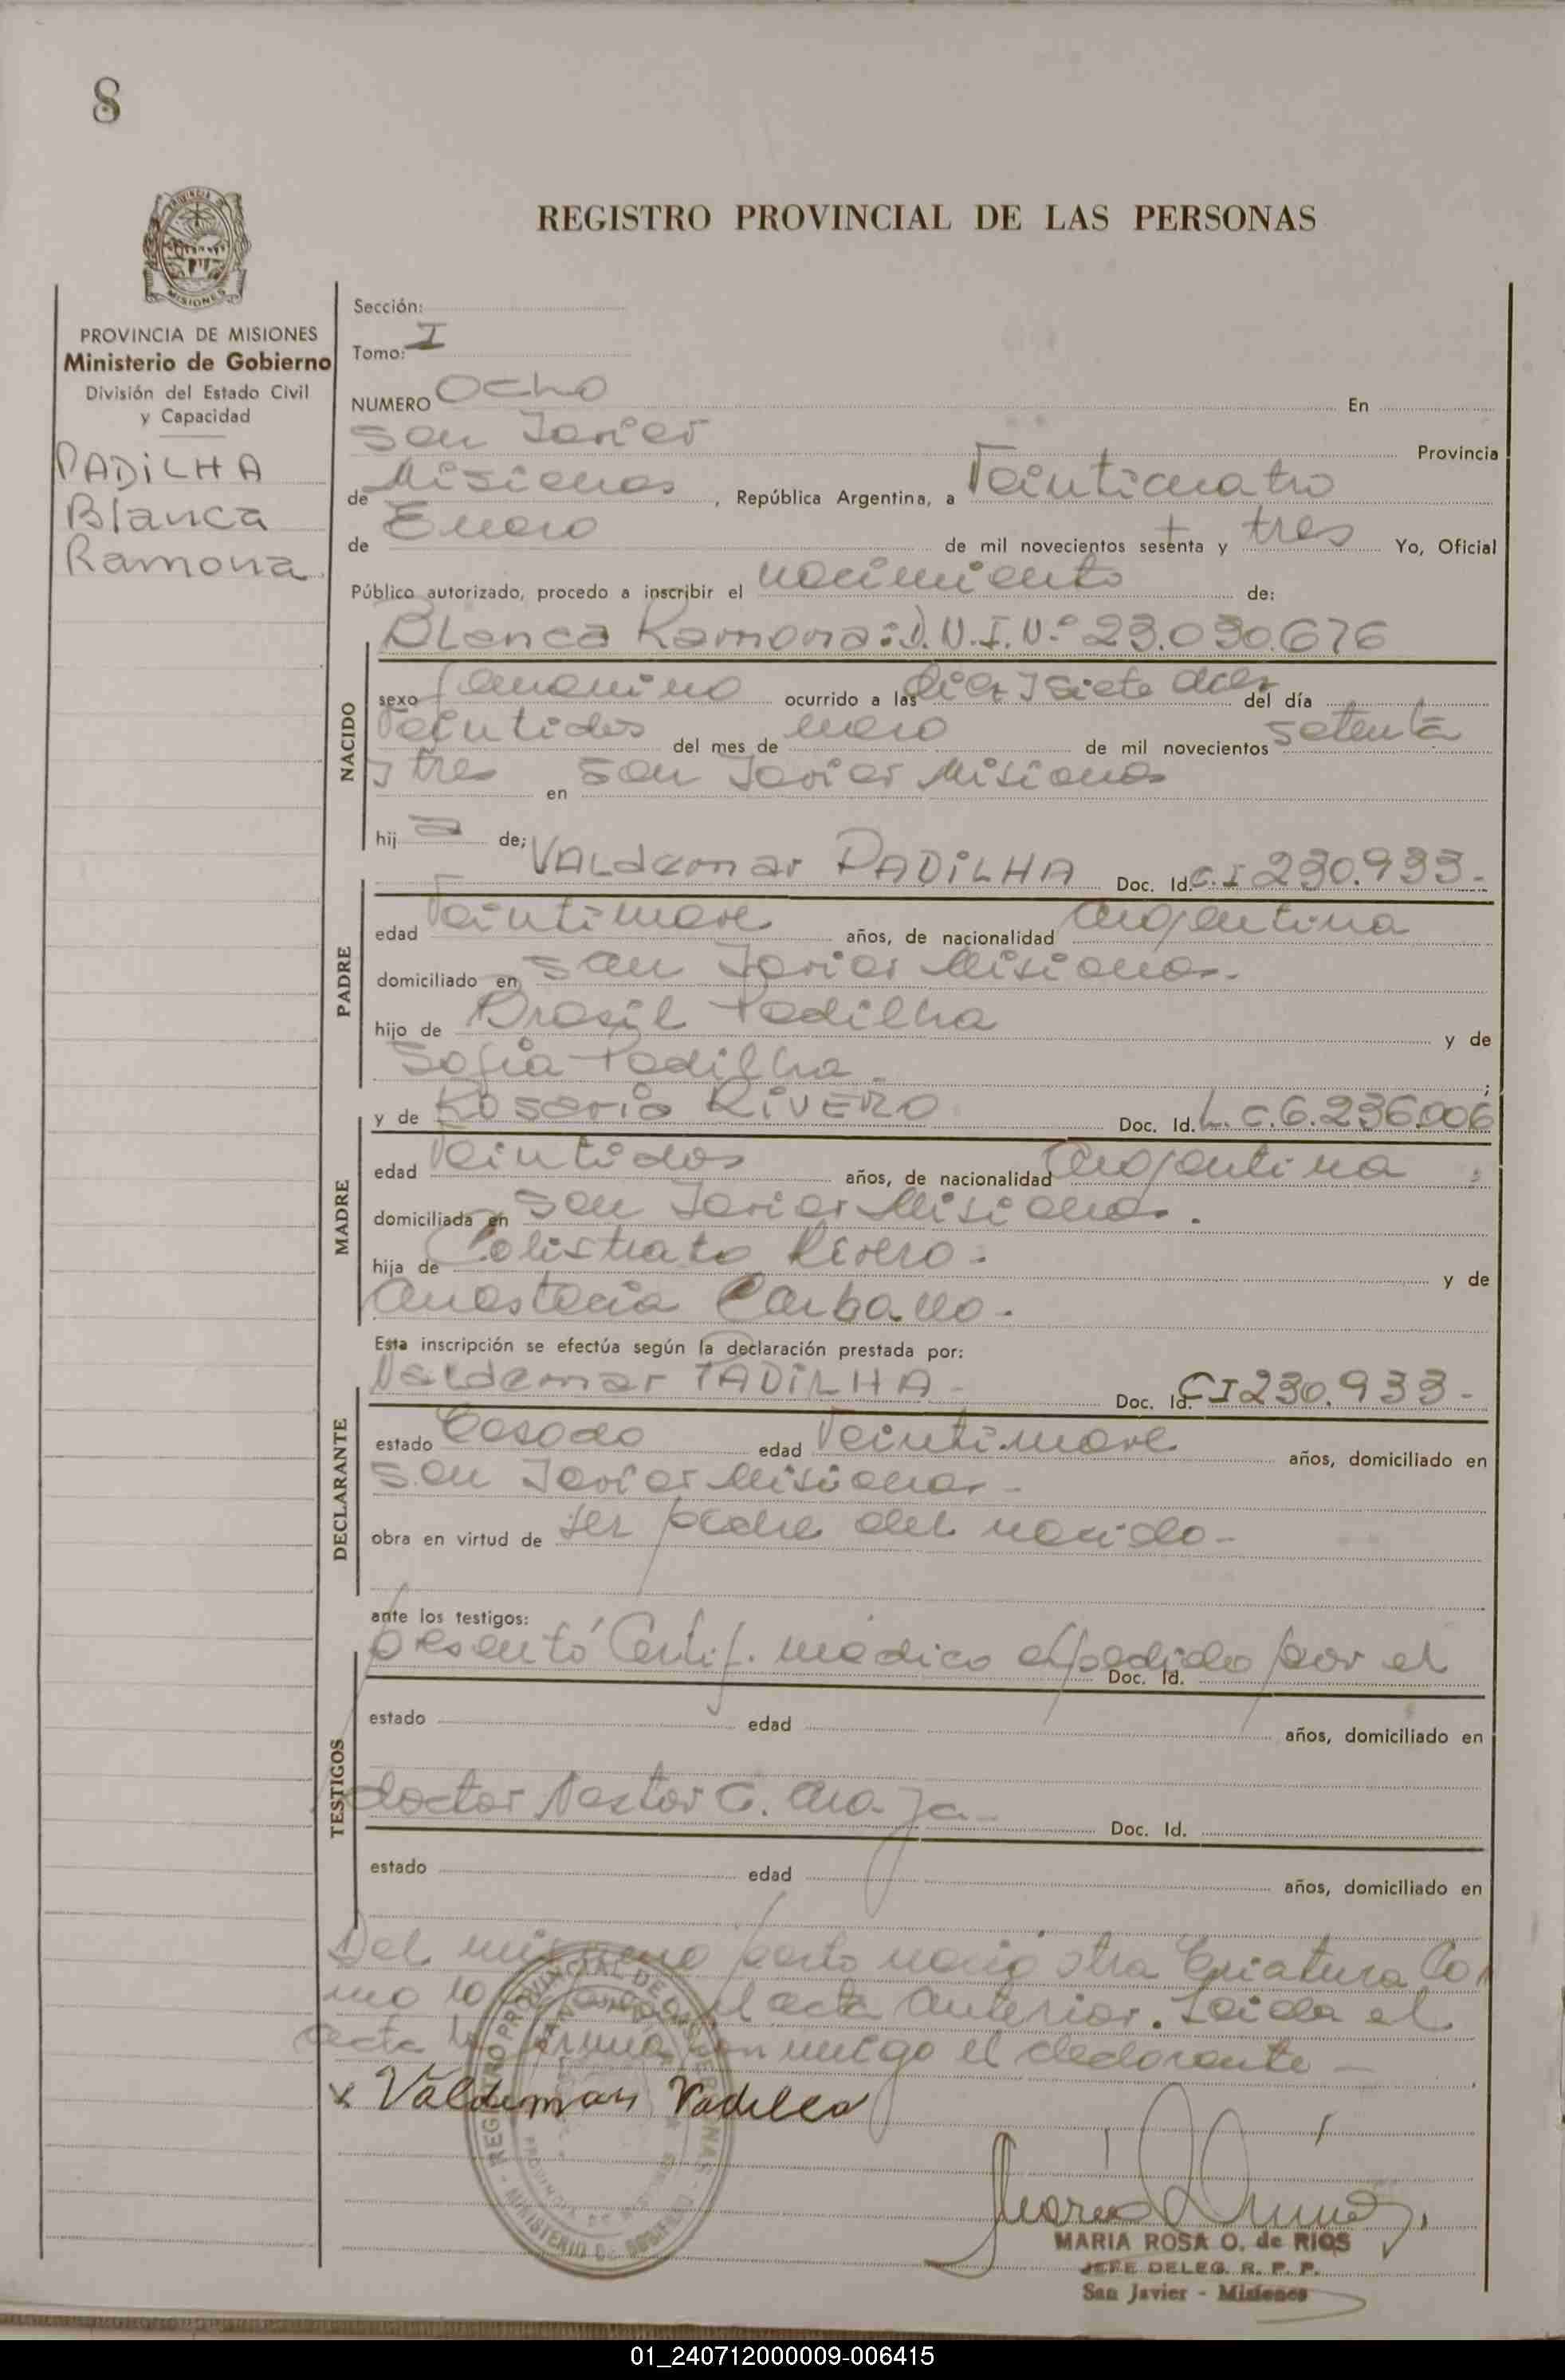 8
REGISTRO PROVINCIAL DE LAS PERSONAS
MISIONES
PROVINCIA DE MISIONES
Ministerio de Gobierno
División del Estado Civil
y Capacidad
PADiLHA
Blanca
Ramona
Sección:
Tomo: I
NUMERO Ocho En
San Javier Provincia
de Misiones, República Argentina, a Veinticuatro
de Enero de mil novecientos sesenta y tres Yo, Oficial
Público autorizado, procedo a inscribir el nacimiento de:
NACIDO
Blanca Ramona: D.N.I.Nº 23.030.676
sexo femenino ocurrido a las diez y siete del día
Veintidos del mes de enero de mil novecientos setenta
y tres en San Javier Misiones
hij a de; VALdemar PADiLHA Doc. Id. C.I 230.933.-
PADRE
edad Veintinueve años, de nacionalidad argentina
domiciliado en San Javier Misiones.-
hijo de Brasil Padilha y de
Sofia Padilha.
y de Rosario RiVERO Doc. Id. L.C 6.236.006
MADRE
edad Veintidos años, de nacionalidad argentina ;
domiciliada en San Javier Misiones.
hija de Calistrato Rivero. y de
Anastacia Carballo.
Esta inscripción se efectúa según la declaración prestada por:
Valdemar PADiLHA- Doc. Id. CI 230.933-
DECLARANTE
estado Casado edad Veintinueve años, domiciliado en
San Javier Misiones-
obra en virtud de ser padre del nacido-
ante los testigos:
TESTIGOS
presentó Certif. médico expedido por el Doc. Id.
estado edad años, domiciliado en
doctor Nestor C. Doc. Id.
estado edad años, domiciliado en
Del mismo parto nació otra Criatura Co
mo lo el acta anterior. Leida el
acta la firma conmigo el declarante-
x Valdemar Padilla
REGISTRO PROVINCIAL DE LAS PERSONAS - MINISTERIO DE GOBIERNO
MARIA ROSA O. de RIOS
JEFE DELEG. R. P. P.
San Javier - Misiones
01_240712000009-006415